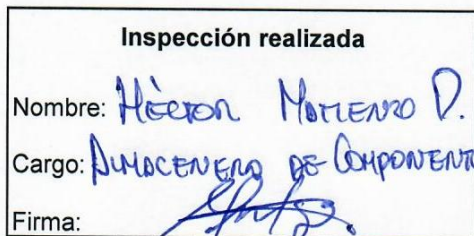 Inspección realizada
Nombre: Hèctor Matienzo D.
Cargo: Almacenero de Component
Firma: